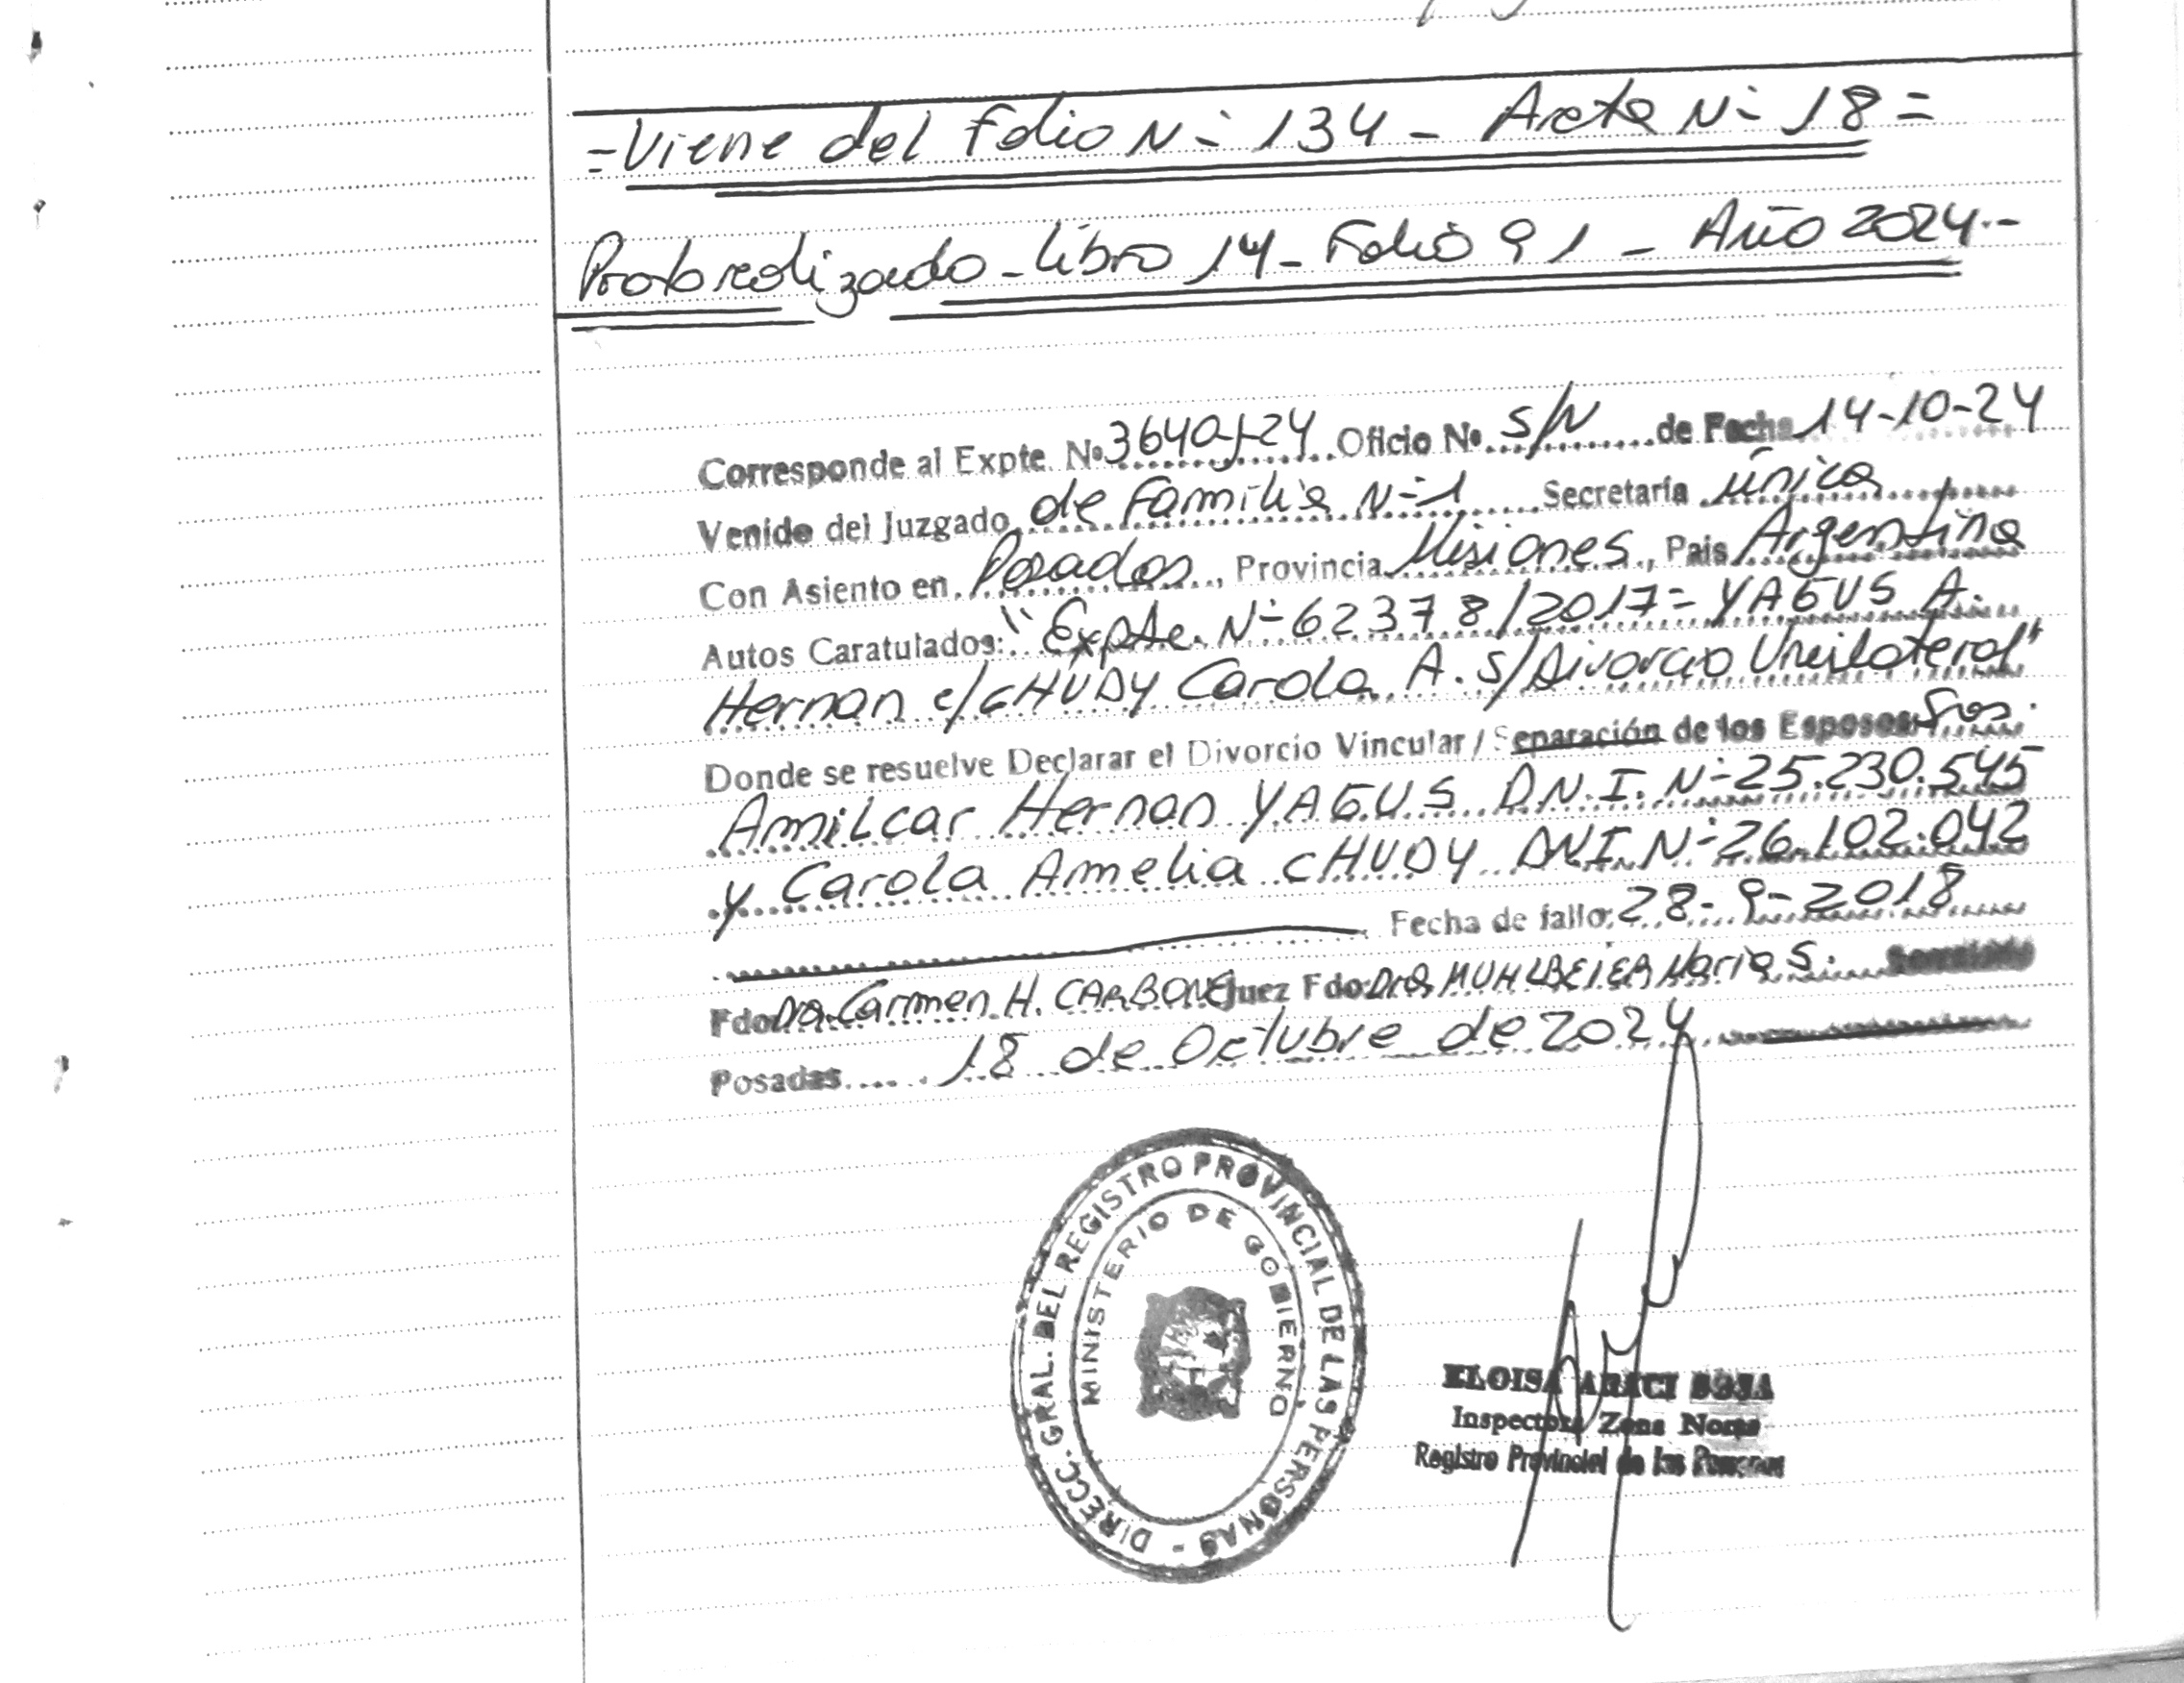 =Viene del folio Nº 134 - Acta Nº 18=
Protocolizado - Libro 14 - Folio 91 - Año 2024.-
Corresponde al Expte. Nº 3640-J-24 Oficio Nº S/N de Fecha 14-10-24
Venido del Juzgado de Familia Nº 1 Secretaría única
Con Asiento en Posadas, Provincia Misiones, País Argentina
Autos Caratulados: "Expte. Nº 62378/2017= YAGUS A.
Hernan c/ CHUDY Carola A. S/Divorcio Unilateral"
Donde se resuelve Declarar el Divorcio Vincular / Separación de los Esposos: Sres.
Amilcar Hernan YAGUS D.N.I. Nº 25.230.545
y Carola Amelia CHUDY DNI Nº 26.102.042
Fecha de fallo: 28-9-2018
Fdo Dra. Carmen H. CARBONE Juez Fdo: Dra MUHLBEIER Maria S.
Posadas 18 de Octubre de 2024
DIRECC. GRAL. DEL REGISTRO PROVINCIAL DE LAS PERSONAS -
MINISTERIO DE GOBIERNO
ELOISA
Inspectora Zona Norte
Registro Provincial de las Personas